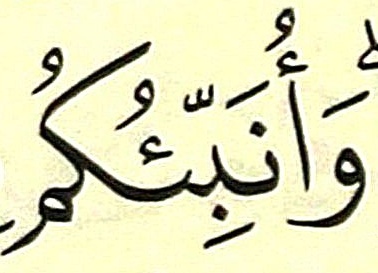 وَأُنَبِّئُكُمُ